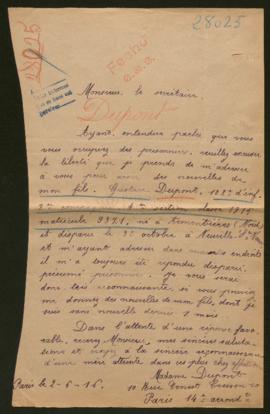 28025
28025
Monsieur le secrétaire
Dupont
Ayant entendu parler que vous
vous occupez des prisonniers, veuillez excuser
la liberté que je prends de m'adresser
à vous pour avoir des nouvelles de
mon fils. Gustave Dupont,
matricule né à Armentières (Nord)
et disparu le octobre à Neuville St
et m'ayant adressé dans endroits
il m'a toujours été répondu disparu,
présumé prisonnier. Je vous serai
donc très reconnaissante, si vous pouviez
me donner des nouvelles de mon fils, dont je
suis sans nouvelle depuis mois
Dans l'attente d'une réponse favo-
rable, recevez Monsieur, mes sincères saluta-
tions et croyez à la sincère reconnaissance
d'une mère attentée dans ses plus chères affections
Madame Dupont
Paris le 2-6-16. 10 Rue Ernest Cresson
Paris 14e arrond